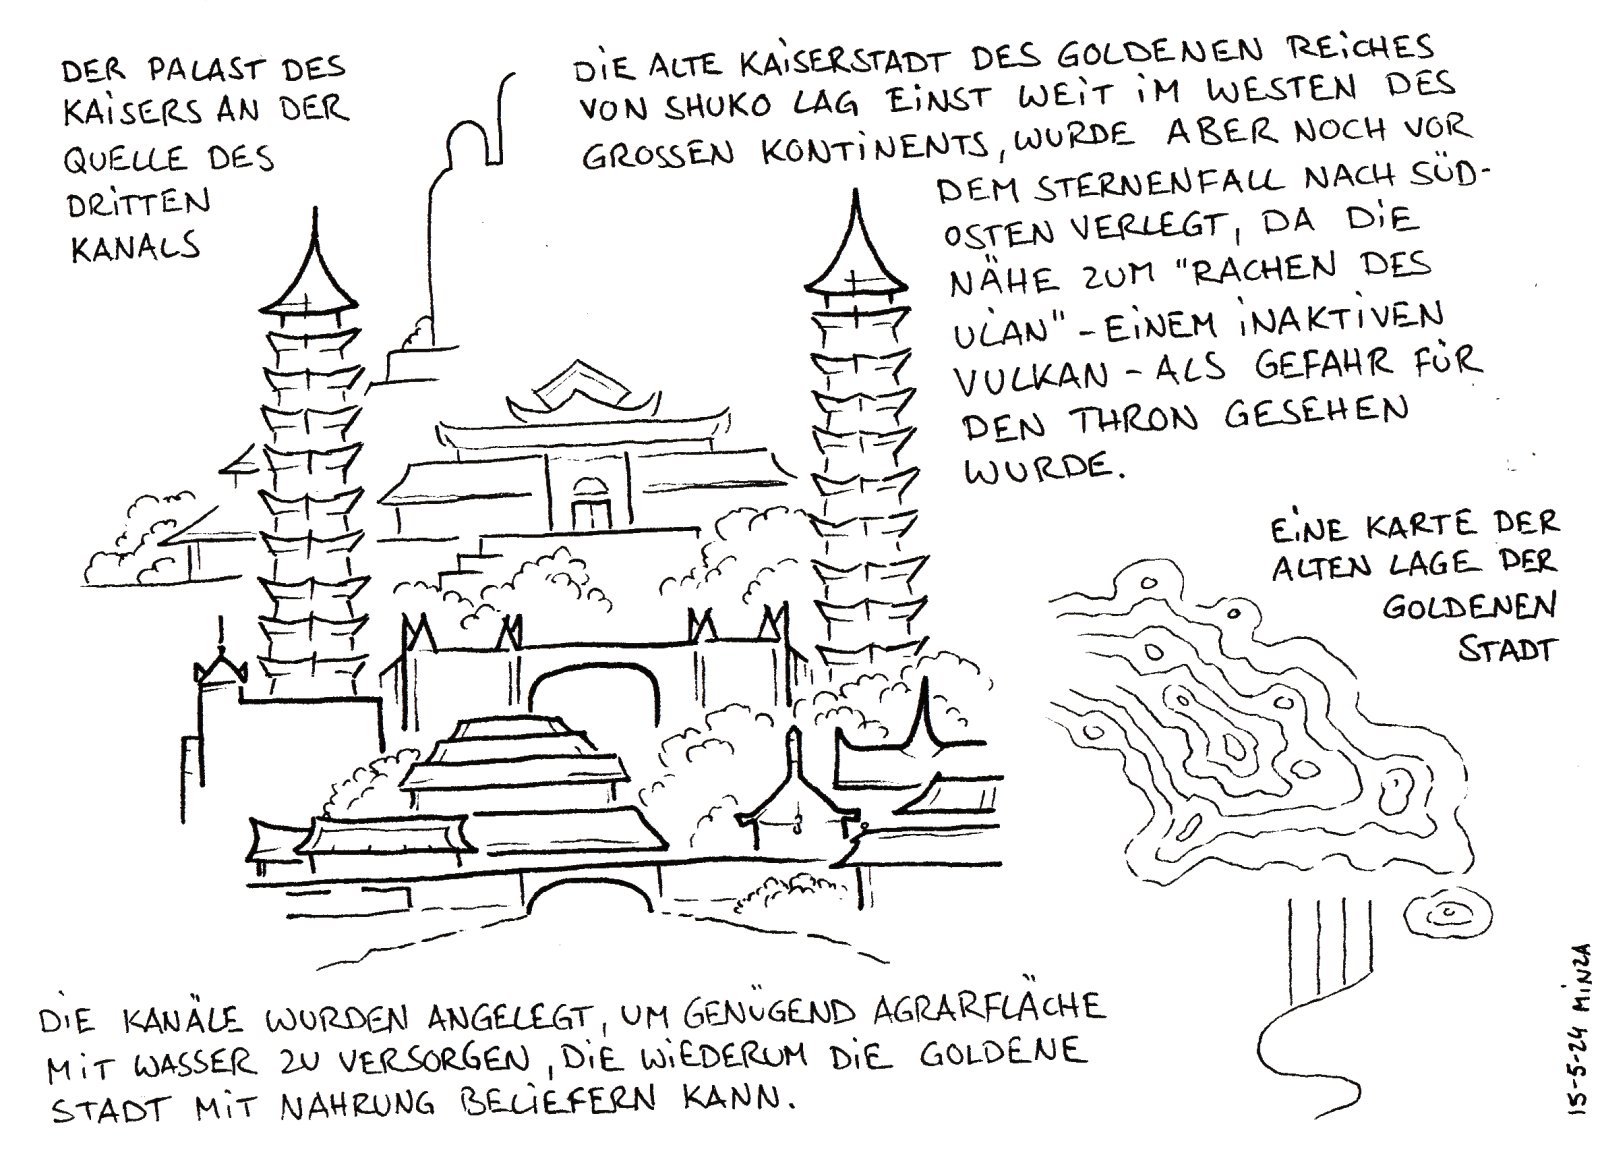 DER PALAST DES
KAISERS AN DER
QUELLE DES
DRITTEN
KANALS
DIE ALTE KAISERSTADT DES GOLDENEN REICHES
VON SHUKO LAG EINST WEIT IM WESTEN DES
GROSSEN KONTINENTS, WURDE ABER NOCH VOR
DEM STERNENFALL NACH SÜD-
OSTEN VERLEGT, DA DIE
NÄHE ZUM "RACHEN DES
ULAN" - EINEM INAKTIVEN
VULKAN - ALS GEFAHR FÜR
DEN THRON GESEHEN
WURDE.
EINE KARTE DER
ALTEN LAGE DER
GOLDENEN
STADT
DIE KANÄLE WURDEN ANGELEGT, UM GENÜGEND AGRARFLÄCHE
MIT WASSER ZU VERSORGEN, DIE WIEDERUM DIE GOLDENE
STADT MIT NAHRUNG BELIEFERN KANN.
15-5-24 MINZA